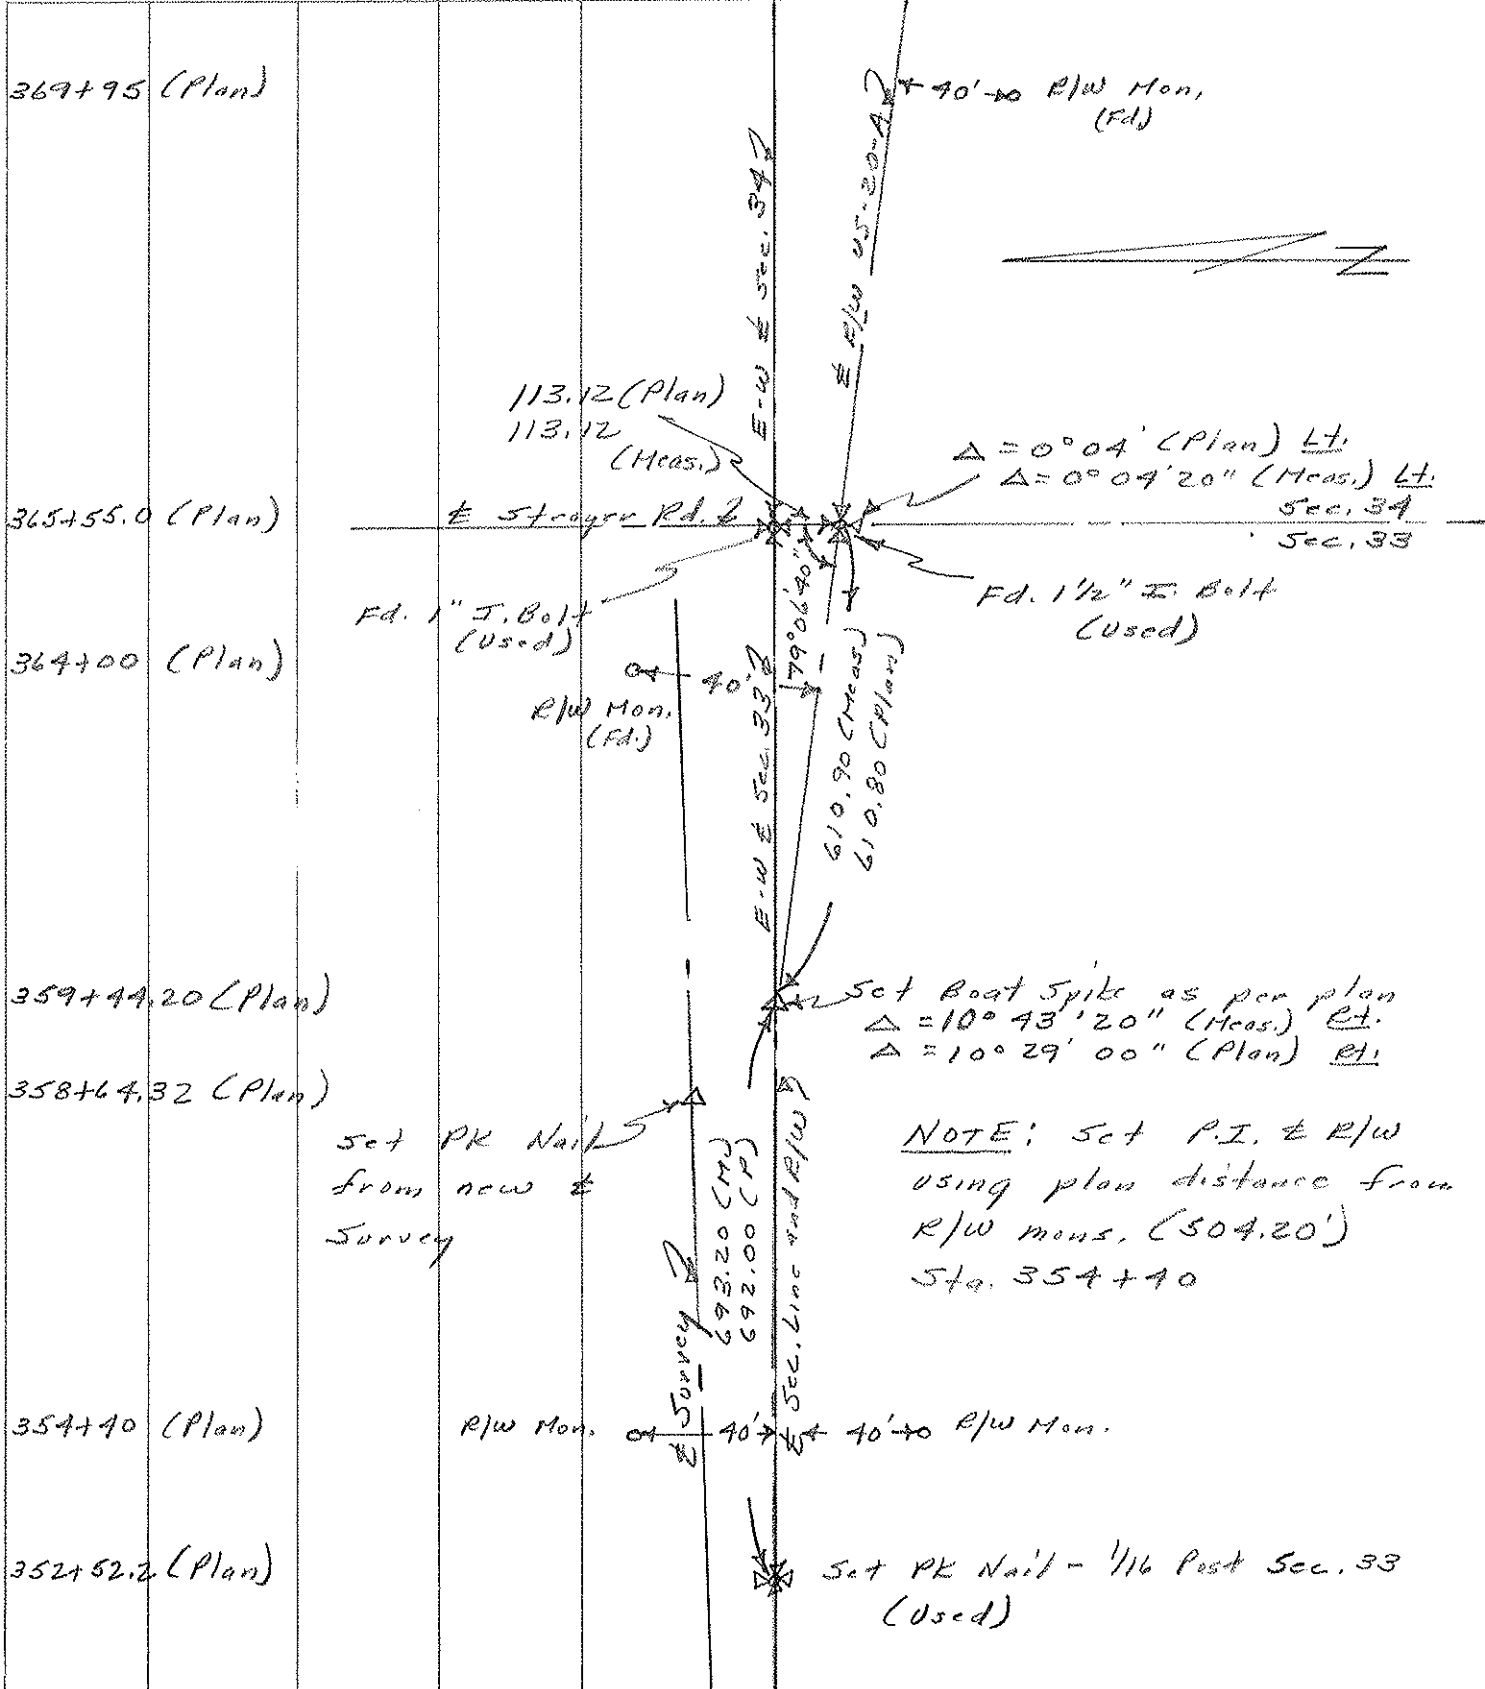 369+95 (Plan)
40' R/W Mon.
(Fd.)
E-W ℄ Sec. 34
℄ R/W US-20-A
N
113.12 (Plan)
113.12
(Meas.)
Δ = 0° 04' (Plan) Lt.
Δ = 0° 04' 20" (Meas.) Lt.
365+55.0 (Plan)
℄ Strayer Rd.
Sec. 34
Sec. 33
Fd. 1" I. Bolt
(Used)
Fd. 1 1/2" I. Bolt
(Used)
79° 06' 40"
364+00 (Plan)
40'
R/W Mon.
(Fd.)
E-W ℄ Sec. 33
610.90 (Meas)
610.80 (Plan)
359+44.20 (Plan)
Set Boat Spike as per plan
Δ = 10° 43' 20" (Meas.) Rt.
Δ = 10° 29' 00" (Plan) Rt.
358+64.32 (Plan)
Set PK Nail
from new ℄
Survey
NOTE: Set P.I. ℄ R/W
using plan distance from
R/W mons. (504.20')
Sta. 354+40
693.20 (M)
692.00 (P)
℄ Survey
℄ Sec. Line and R/W
354+40 (Plan)
R/W Mon. 40' 40' R/W Mon.
352+52.2 (Plan)
Set PK Nail - 1/16 Post Sec. 33
(Used)